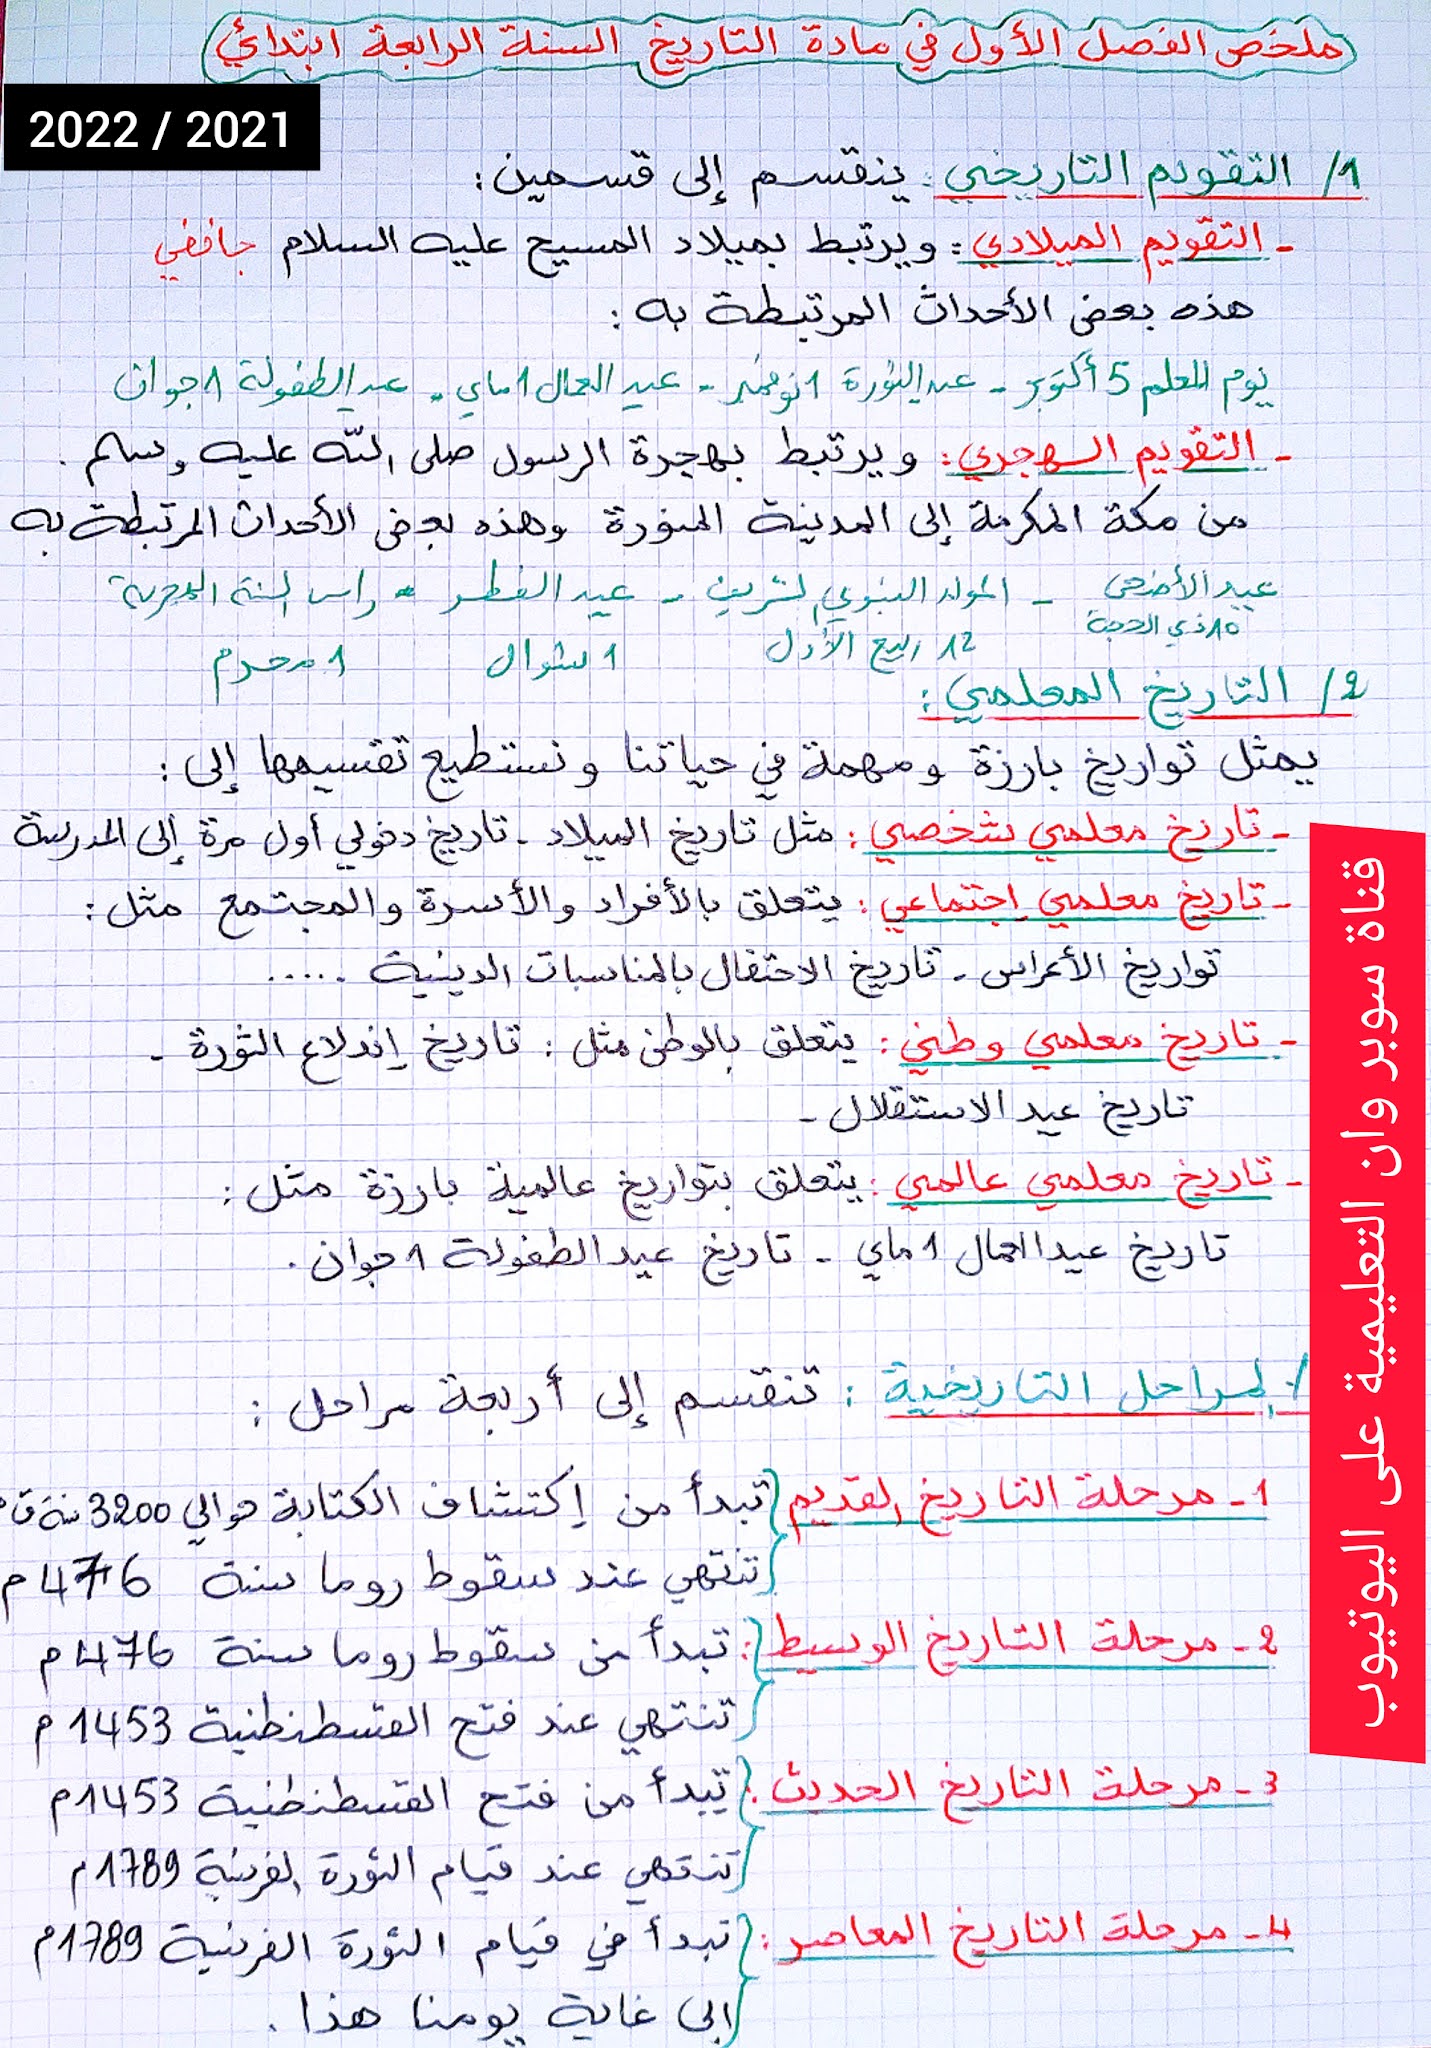 ملخص الفصل الأول في مادة التاريخ السنة الرابعة ابتدائي
2022 / 2021
1/ التقويم التاريخي : ينقسم إلى قسمين :
- التقويم الميلادي : ويرتبط بميلاد المسيح عليه السلام جانفي
هذه بعض الأحداث المرتبطة به :
يوم المعلم 5 أكتوبر - عيد الثورة 1 نوفمبر - عيد العمال 1 ماي - عيد الطفولة 1 جوان
- التقويم الهجري : ويرتبط بهجرة الرسول صلى الله عليه وسلم .
من مكة المكرمة إلى المدينة المنورة وهذه بعض الأحداث المرتبطة به
عيد الأضحى - المولد النبوي الشريف - عيد الفطر - راس السنة الهجرية
10 ذي الحجة 12 ربيع الأول 1 شوال 1 محرم
2/ التاريخ المعلمي :
يمثل تواريخ بارزة ومهمة في حياتنا ونستطيع تقسيمها إلى :
- تاريخ معلمي شخصي : مثل تاريخ الميلاد - تاريخ دخولي أول مرة إلى المدرسة
- تاريخ معلمي إجتماعي : يتعلق بالأفراد والأسرة والمجتمع مثل :
تواريخ الأعراس - تاريخ الاحتفال بالمناسبات الدينية .....
- تاريخ معلمي وطني : يتعلق بالوطن مثل : تاريخ إندلاع الثورة -
تاريخ عيد الاستقلال -
- تاريخ معلمي عالمي : يتعلق بتواريخ عالمية بارزة مثل :
تاريخ عيد العمال 1 ماي - تاريخ عيد الطفولة 1 جوان .
/ المراحل التاريخية : تنقسم إلى أربعة مراحل :
1- مرحلة التاريخ القديم تبدأ من إكتشاف الكتابة حوالي 3200 سنة ق م
تنتهي عند سقوط روما سنة 476 م
2- مرحلة التاريخ الوسيط : تبدأ من سقوط روما سنة 476 م
تنتهي عند فتح القسطنطنية 1453 م
3- مرحلة التاريخ الحديث : تبدأ من فتح القسطنطنية 1453 م
تنتهي عند قيام الثورة الفرنسية 1789 م
4- مرحلة التاريخ المعاصر : تبدأ في قيام الثورة الفرنسية 1789 م
الى غاية يومنا هذا .
قناة سوبر وان التعليمية على اليوتيوب